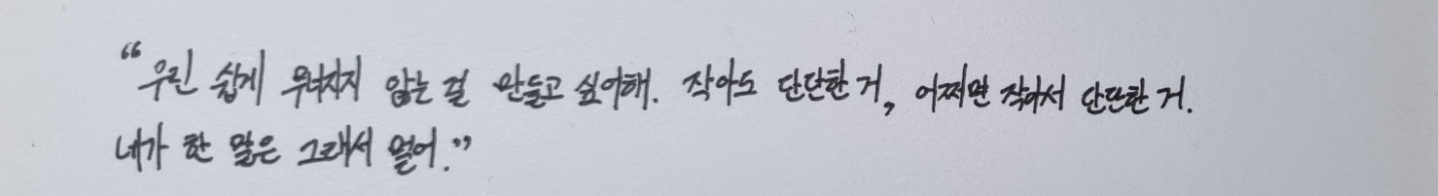 “우린 쉽게 무너지지 않는 걸 만들고 싶어해. 작아도 단단한 거, 어쩌면 작아서 단단한 거.
네가 한 말은 그래서 멀어.”